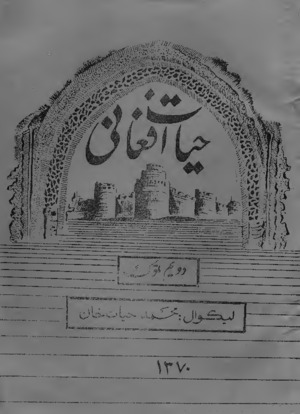 حیات افغانی
دویم ټوک
لیکوال: محمد حیات خان
۱۳۷۰